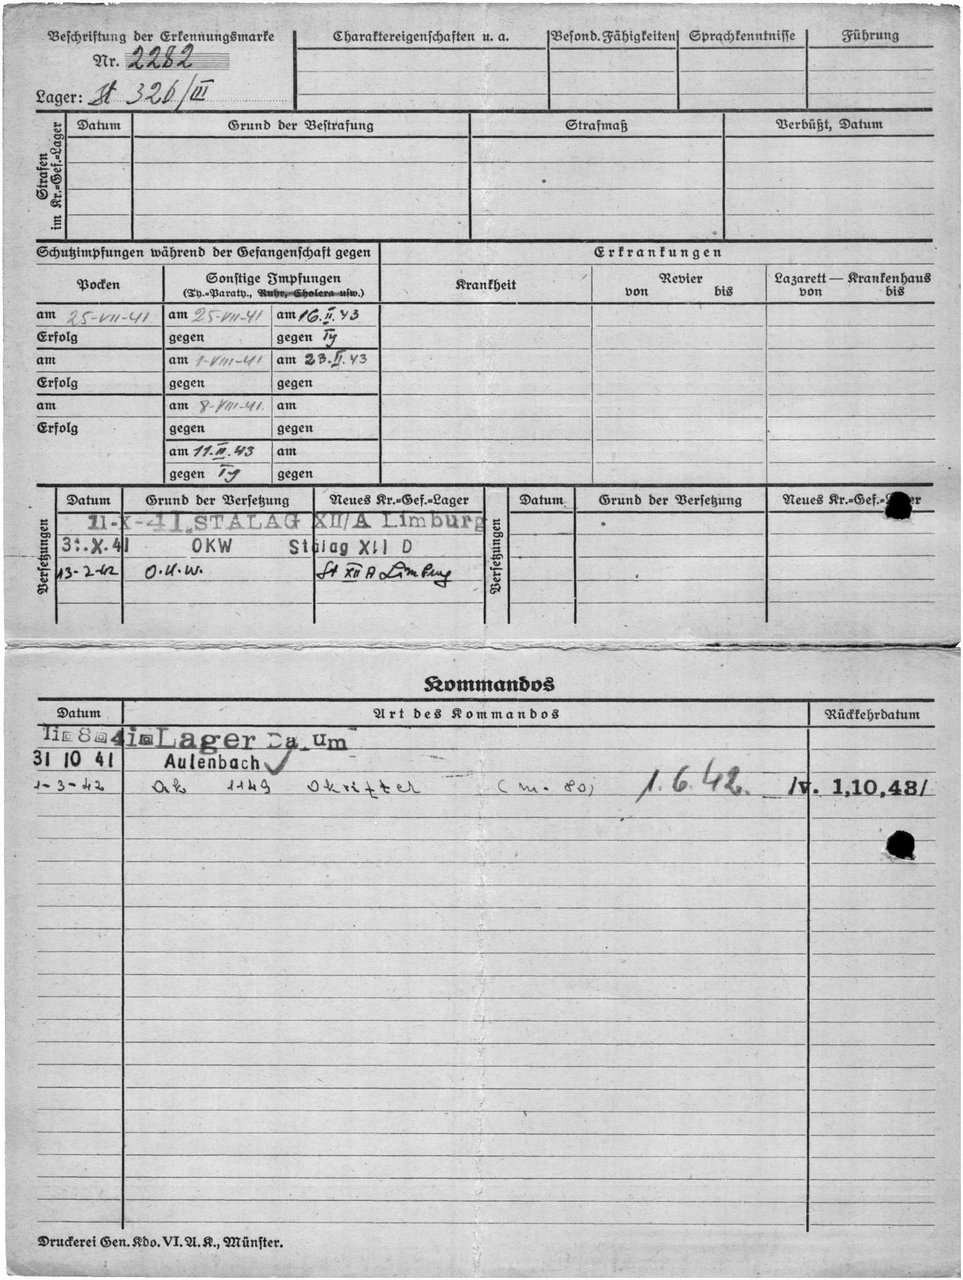 Beschriftung der Erkennungsmarke
Nr. 2282
Lager: St 326/III
Charaktereigenschaften u. a.
Besond. Fähigkeiten
Sprachkenntnisse
Führung
Strafen im Kr.=Gef.=Lager
Datum
Grund der Bestrafung
Strafmaß
Verbüßt, Datum
Schutzimpfungen während der Gefangenschaft gegen
Erkrankungen
Pocken
Sonstige Impfungen
(Ty.=Paraty., Ruhr, Cholera usw.)
Krankheit
Revier
von bis
Lazarett — Krankenhaus
von bis
am 25-VII-41 am 25-VII-41 am 16.II.43
Erfolg gegen gegen Ty
am am 1-VIII-41 am 23.II.43
Erfolg gegen gegen
am am 8-VIII-41. am
Erfolg gegen gegen
am 11.II.43 am
gegen Ty gegen
Versetzungen
Datum Grund der Versetzung Neues Kr.=Gef.=Lager
11-X-41. STALAG XII/A Limburg
31.X.41 OKW Stalag XII D
13-2-42 O.K.W. St XII A Limburg
Versetzungen
Datum Grund der Versetzung Neues Kr.=Gef.=
Kommandos
Datum Art des Kommandos Rückkehrdatum
Lager
31 10 41 Aulenbach
1-3-42 1149 (m. 80) 1.6.42. /v. 1,10,43/
Druckerei Gen. Kdo. VI. A. K., Münster.